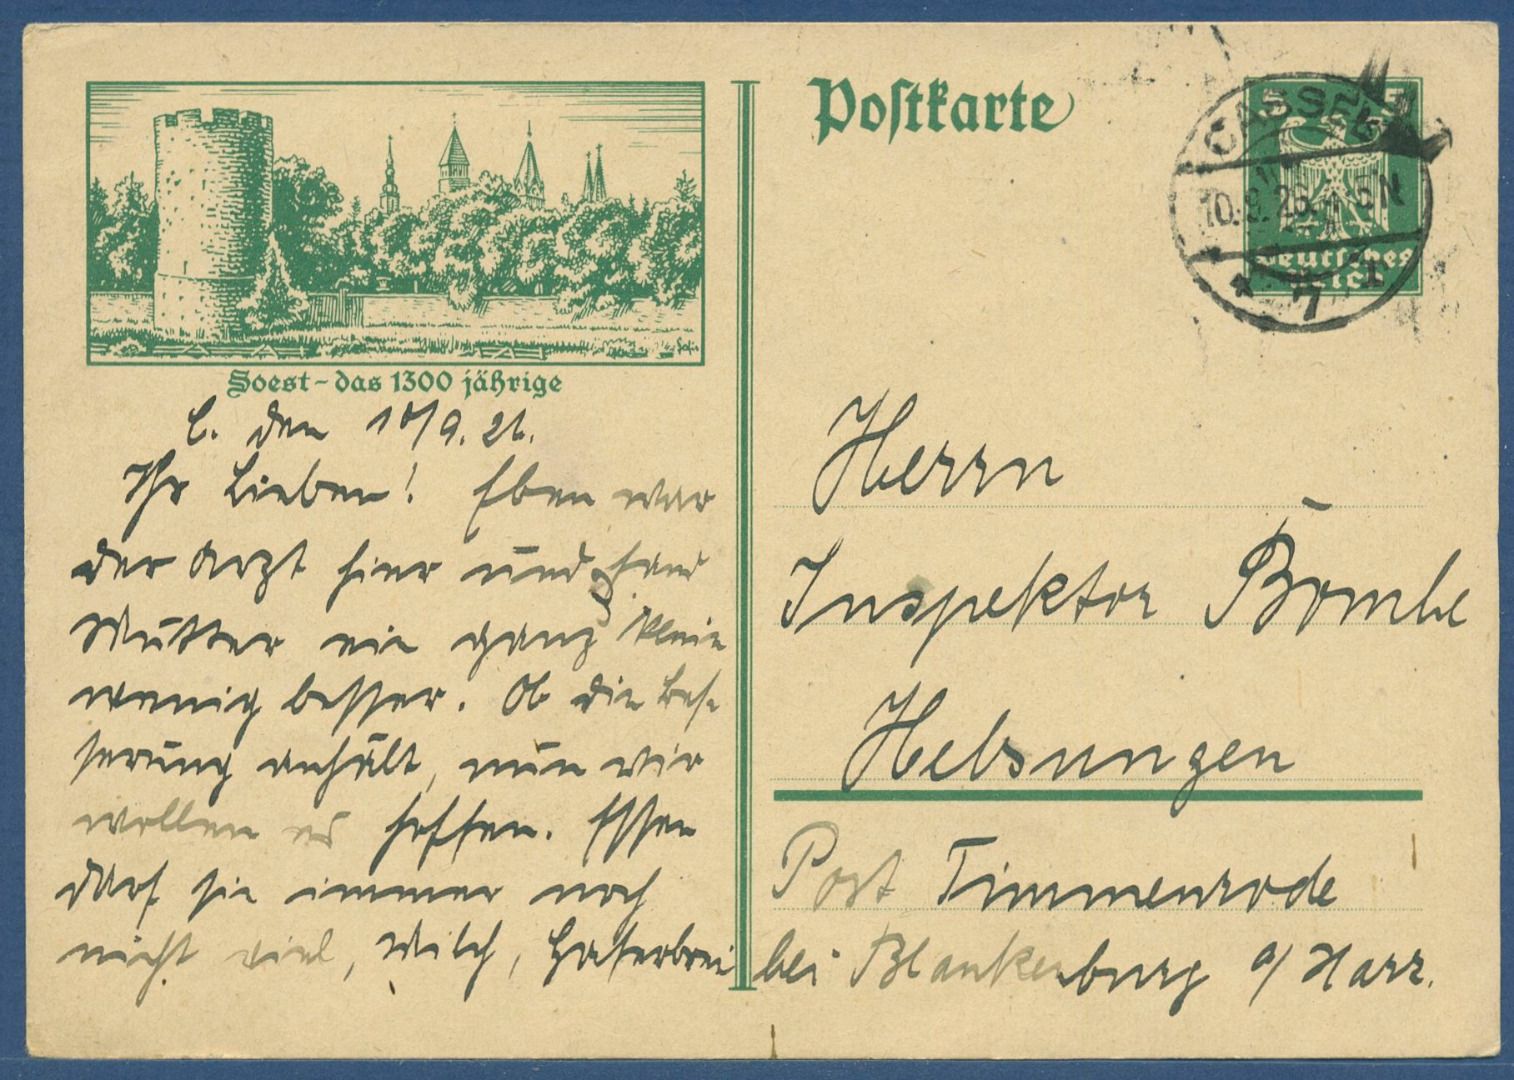 Postkarte
5 5
CASSEL
10.9.26. 5 N
* 7 1
Deutsches
Reich
Soest - das 1300 jährige
C. den 10/9. 26.
Ihr Lieben! Eben war
der Arzt hier und fand
Mutter ein ganz klein
wenig besser. Ob die Bes-
serung anhält, nun wir
wollen es hoffen. Essen
darf sie immer noch
nicht viel, Milch, Haferbrei
Herrn
Inspektor
Helsungen
Post Timmenrode
bei Blankenburg a/ Harz.